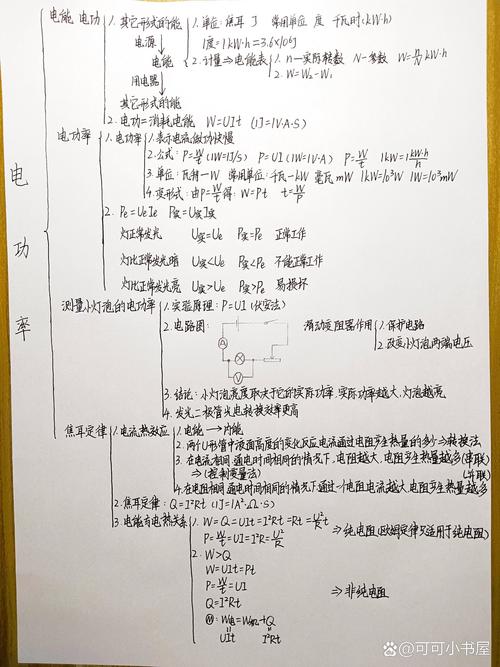 电功率
电能 电功
1. 其它形式的能
电源↓
电能
用电器↓
其它形式的能
1. 单位: 焦耳 J 常用单位 度 千瓦时(kW·h)
1度=1kW·h=3.6×10⁶J
2. 计量⇒电能表
1. n—实际转数 N—参数 W=n/N kW·h
2. W=W₂-W₁
2. 电功=消耗电能 W=UIt (1J=1V·A·S)
电功率
1. 电功率
1. 表示电流做功快慢
2. 公式: P=W/t (1W=1J/s) P=UI (1W=1V·A) P=W/t 1kW=1kW·h/h
3. 单位: 瓦特—W 常用单位: 千瓦—kW 毫瓦 mW 1kW=10³W 1W=10³mW
4. 变形式: 由P=W/t得: W=Pt t=W/P
2. Pe=UeIe P实=U实I实
灯正常发光 U实=Ue P实=Pe 正常工作
灯比正常发光暗 U实<Ue P实<Pe 不能正常工作
灯比正常发光亮 U实>Ue P实>Pe 易损坏
测量小灯泡的电功率
1. 实验原理: P=UI (伏安法)
2. 电路图:
A
V
滑动变阻器作用
1. 保护电路
2. 改变小灯泡两端电压
3. 结论: 小灯泡亮度取决于它的实际功率, 实际功率越大, 灯泡越亮
4. 发光二极管光电转换效率更高
焦耳定律
1. 电流热效应
1. 电能→内能
2. 两个U形管中液面高度的变化反应电流通过电阻产生热量的多少⇒转换法
3. 在电流相同, 通电时间相同的情况下, 电阻越大, 电阻产生热量越多(串联)
⇒(控制变量法) (并联)
4. 在电阻相同, 通电时间相同的情况下通过一个电阻电流越大, 电阻产生热量越多
2. 焦耳定律: Q=I²Rt (1J=1A²·Ω·S)
3. 电能与电热关系
1. W=Q=UIt=I²Rt=Pt=U²/R t
P=W/t=UI=I²R=U²/R
⇒纯电阻(欧姆定律只适用于纯电阻)
2. W>Q
W=UIt=Pt
P=W/t=UI
Q=I²Rt
⇒非纯电阻
M: W电=W机+Q
UIt I²Rt
@可可小书屋